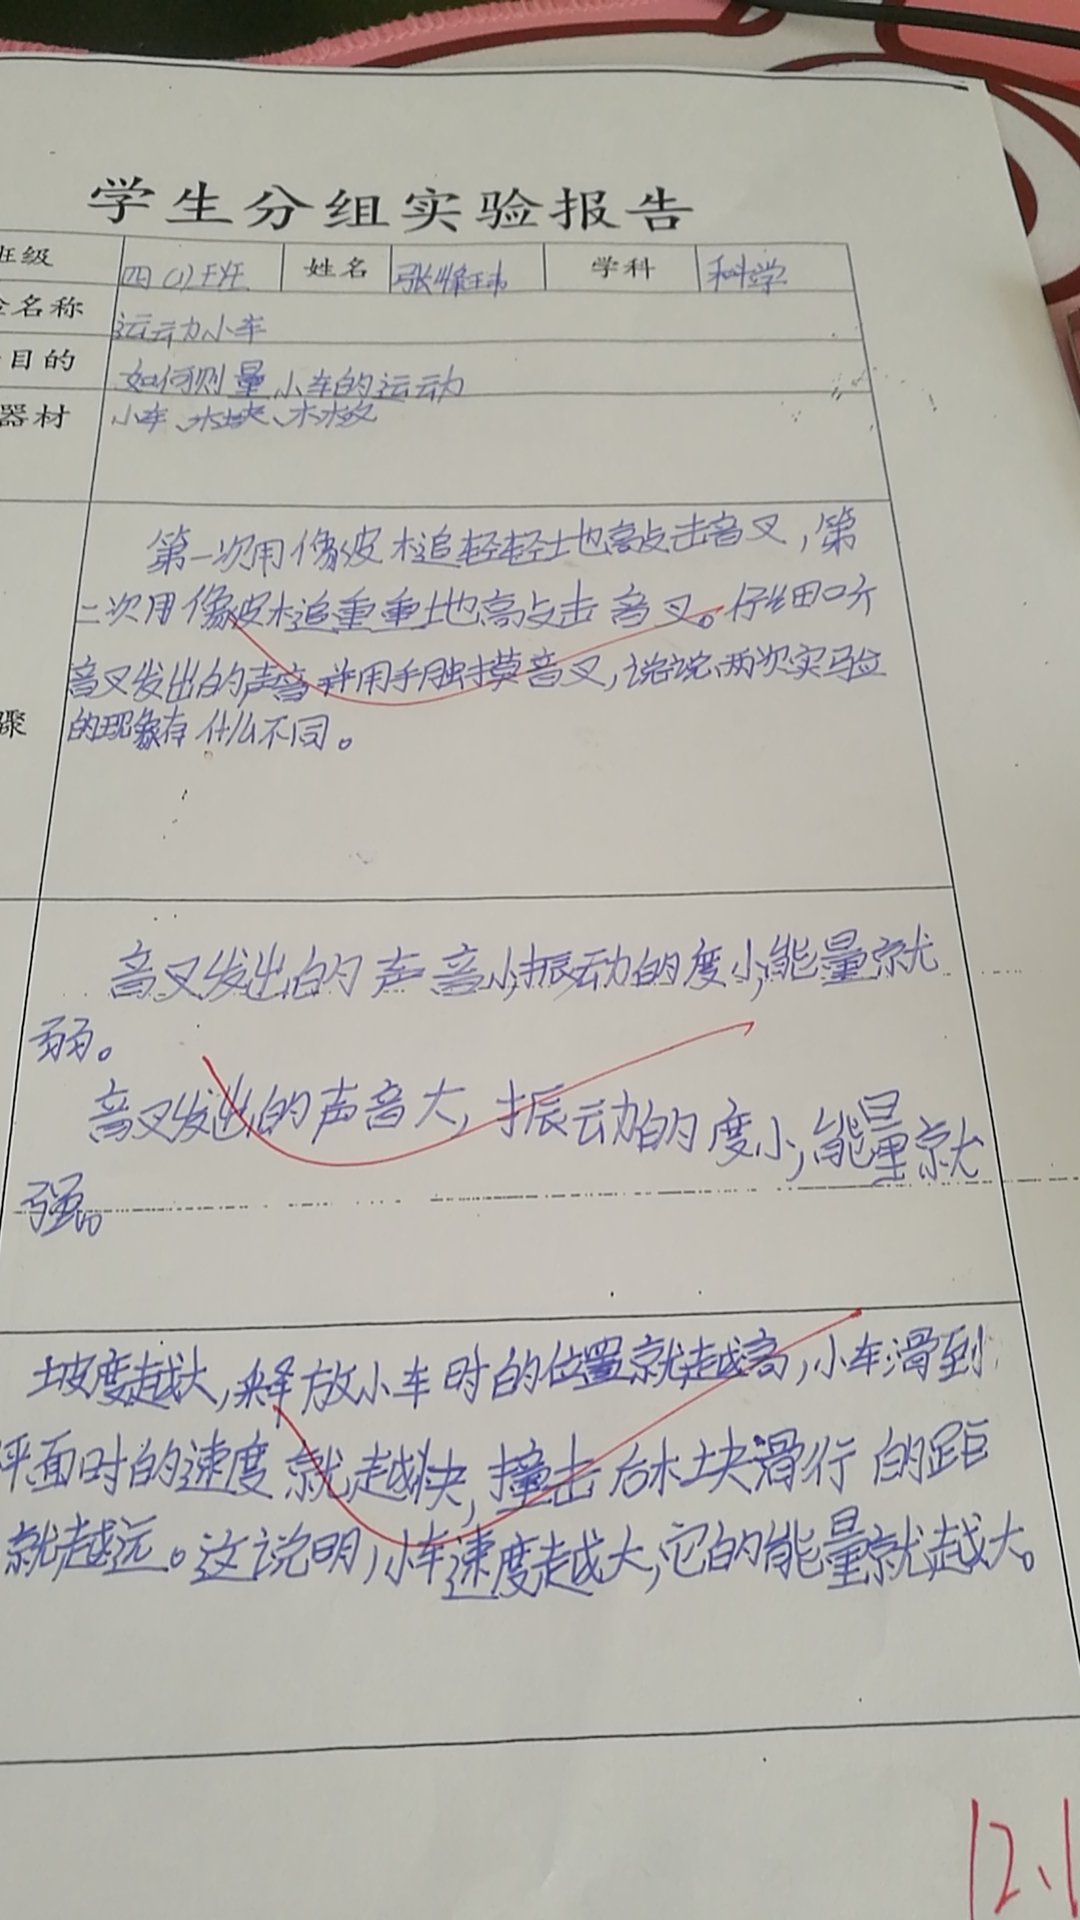 学生分组实验报告
班级 四(1)班 姓名 张 学科 科学
名称 运动小车
目的 如何测量小车的运动
器材 小车、木块、木板
第一次用橡皮木追轻轻土也高攵击音叉,第
二次用橡皮木追重重土也高攵击音叉。仔细听
骤
音叉发出的声音并用手触摸音叉,说说两次实验
的现象有什么不同。
音叉发出的声音小,振动的度小,能量就
弱。
音叉发出的声音大,振动的度小,能量就
强。
坡度越大,释放小车时的位置就越高,小车滑到
平面时的速度就越快,撞击后木块滑行的距
就越远。这说明,小车速度越大,它的能量就越大。
12.1